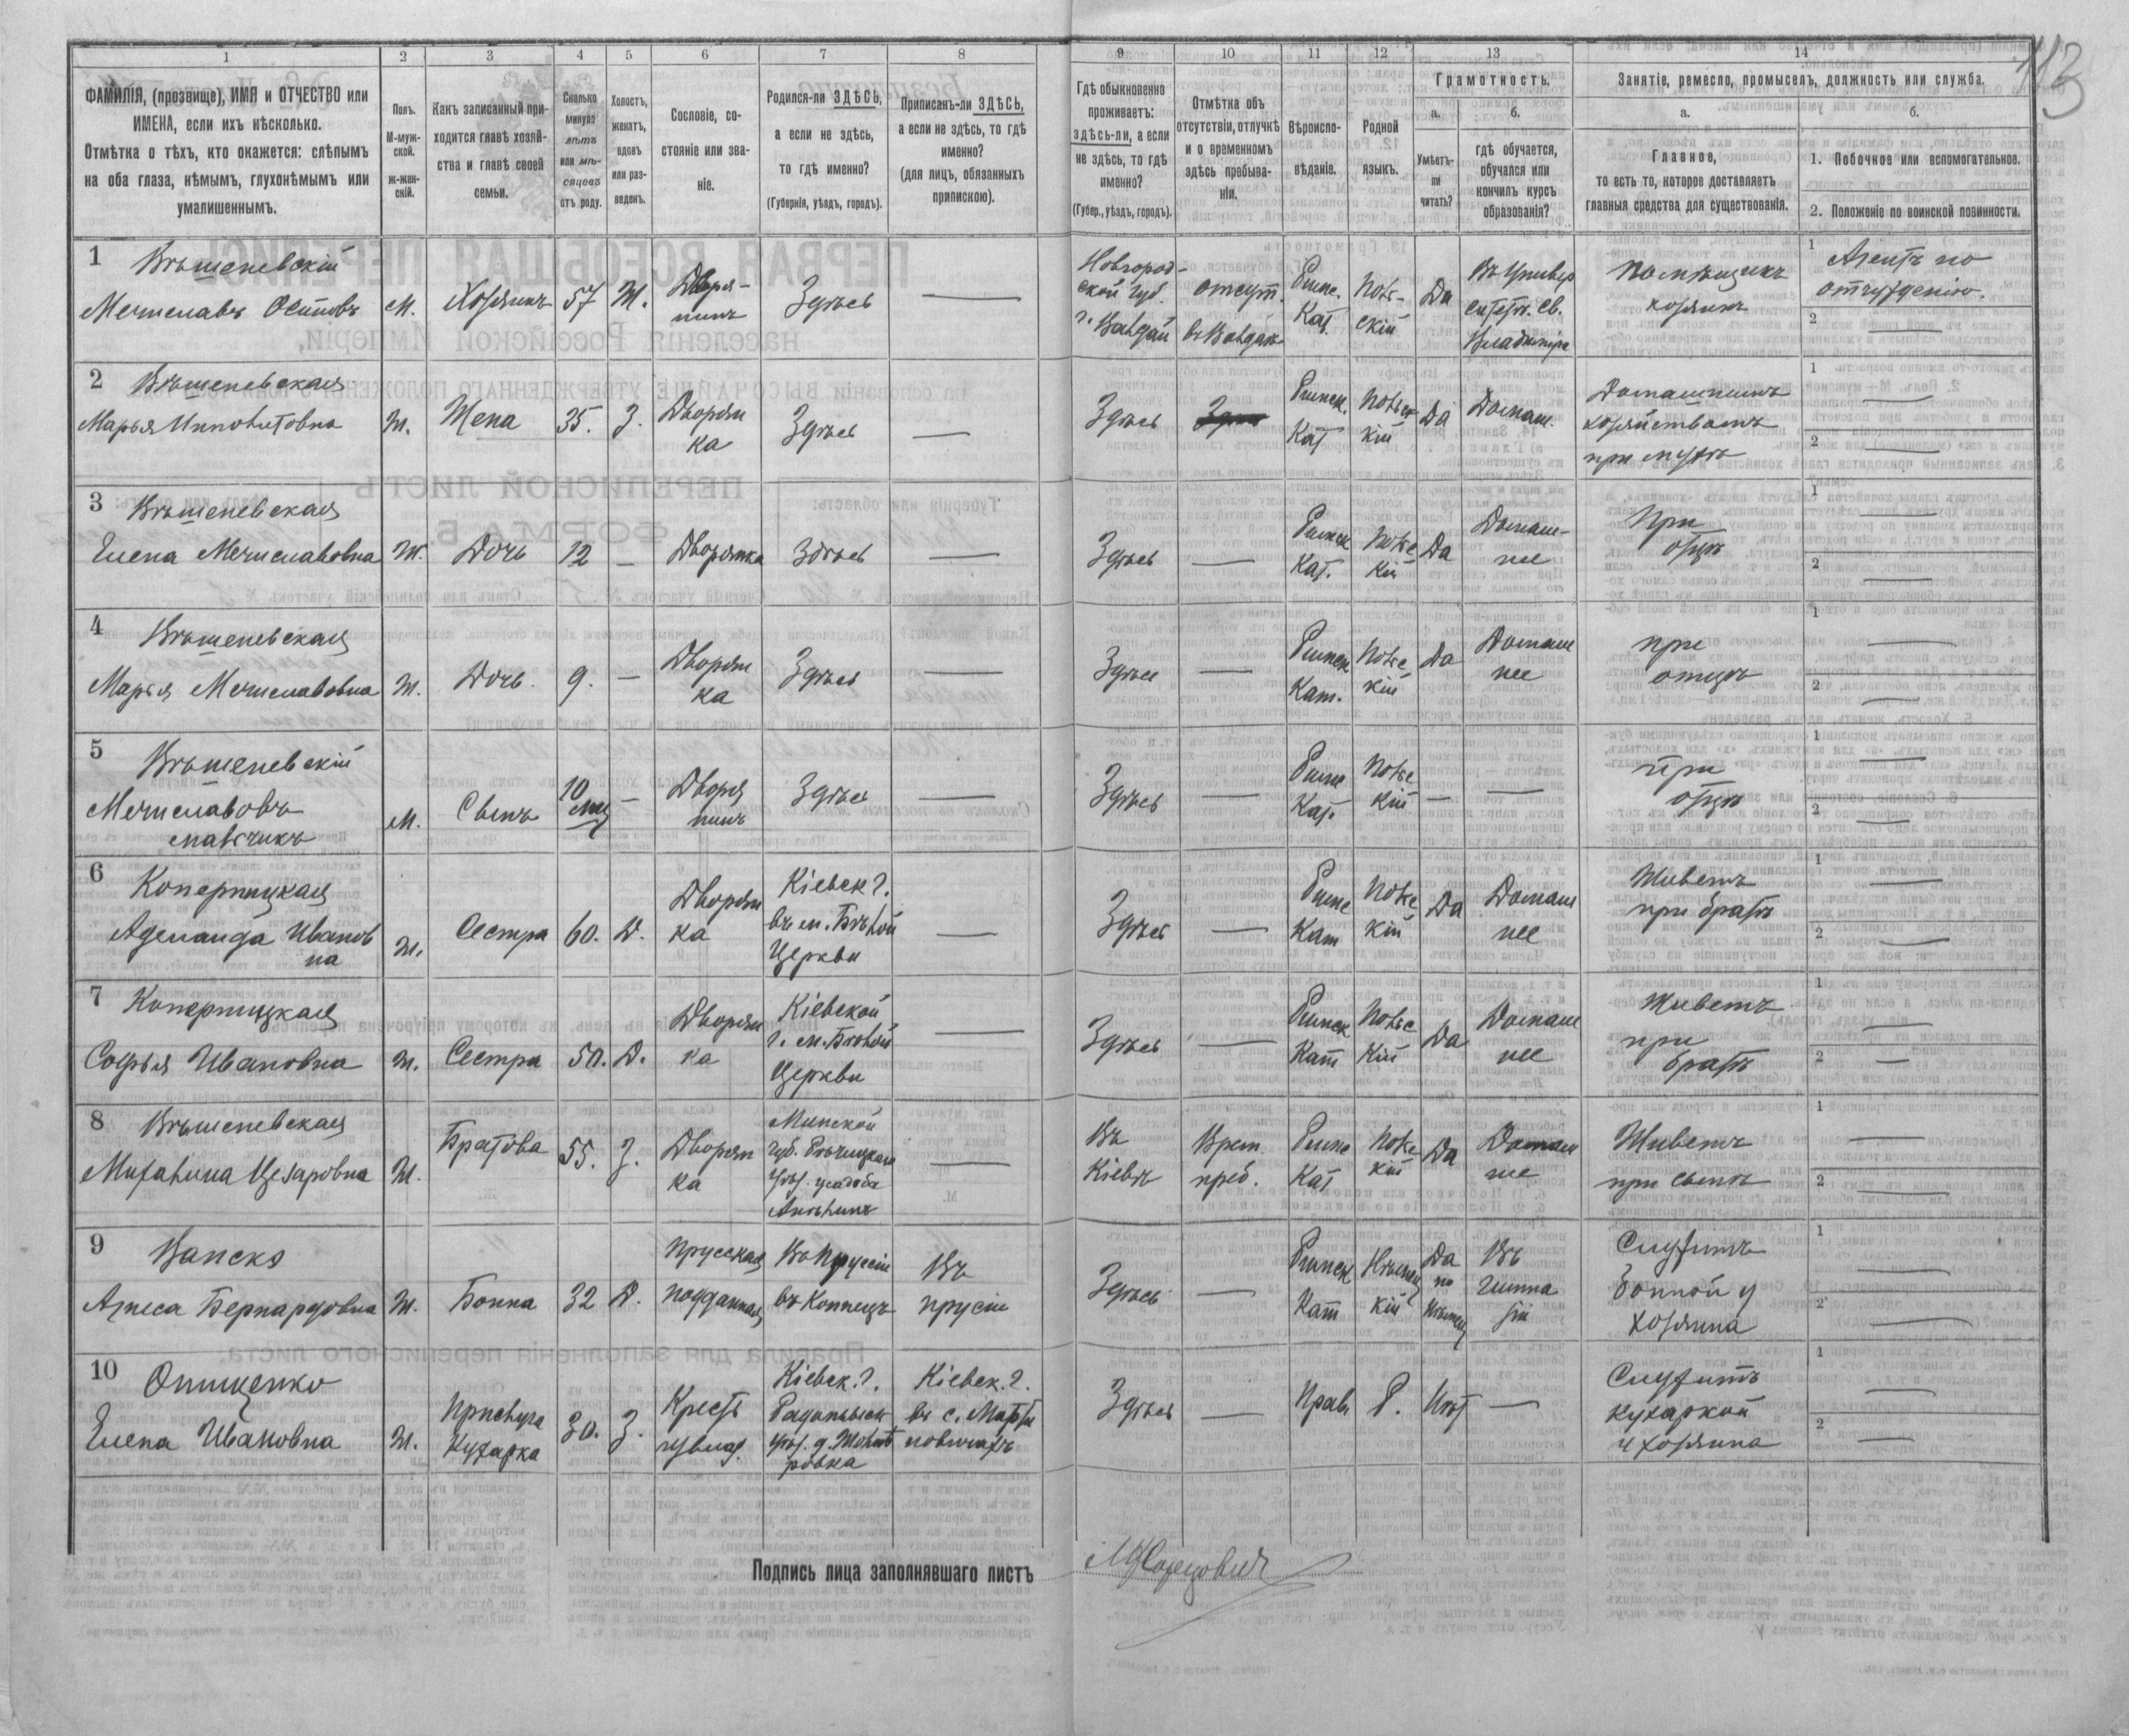 113
1 2 3 4 5 6 7 8 9 10 11 12 13 14
ФАМИЛІЯ, (прозвище), ИМЯ и ОТЧЕСТВО или
ИМЕНА, если ихъ нѣсколько.
Отмѣтка о тѣхъ, кто окажется: слѣпымъ
на оба глаза, нѣмымъ, глухонѣмымъ или
умалишеннымъ.
Полъ.
М-муж-
ской.
ж-жен-
скій.
Какъ записанный при-
ходится главѣ хозяй-
ства и главѣ своей
семьи.
Сколько
минуло
лѣтъ
или мѣ-
сяцевъ
отъ роду.
Холостъ,
женатъ,
вдовъ
или раз-
веденъ.
Сословіе, со-
стояніе или зва-
ніе.
Родился-ли ЗДѢСЬ,
а если не здѣсь,
то гдѣ именно?
(Губернія, уѣздъ, городъ).
Приписанъ-ли ЗДѢСЬ,
а если не здѣсь, то гдѣ
именно?
(для лицъ, обязанныхъ
припискою).
Гдѣ обыкновенно
проживаетъ:
здѣсь-ли, а если
не здѣсь, то гдѣ
именно?
(Губер., уѣздъ, городъ).
Отмѣтка объ
отсутствіи, отлучкѣ
и о временномъ
здѣсь пребыва-
ніи.
Вѣроиспо-
вѣданіе.
Родной
языкъ.
Грамотность.
а.
Умѣетъ-
ли
читать?
б.
гдѣ обучается,
обучался или
кончилъ курсъ
образованія?
Занятіе, ремесло, промыселъ, должность или служба.
а.
Главное,
то есть то, которое доставляетъ
главныя средства для существованія.
б.
1. Побочное или вспомогательное.
2. Положеніе по воинской повинности.
1
Крашеневскій
Мечиславъ Осиповъ
М.
Хозяинъ
57
Ж.
Дворя-
нинъ
Здѣсь
—
Новгород-
ской Губ.
г. Валдай
отсут.
въ Валдаѣ
Римс.
Кат.
Поль-
скій
Да
Въ Универ
ситет. Св.
Владиміра
Помѣщикъ
хозяинъ
1 Агентъ по
отчужденію.
2 —
2
Крашеневская
Марья Ипполитовна
Ж.
Жена
35.
З.
Дворян
ка
Здѣсь
—
Здѣсь
Римск.
Кат
Польс
кій
Да
Домаш.
Домашнимъ
хозяйствомъ
при мужѣ
1 —
2 —
3
Крашеневская
Елена Мечиславовна
Ж.
Дочь
12
—
Дворянка
Здѣсь
—
Здѣсь
—
Римск
Кат.
Польс
кій
Да
Домаш-
нее
При
отцѣ
1 —
2 —
4
Крашеневская
Марья Мечиславовна
Ж.
Дочь.
9.
—
Дворян
ка
Здѣсь
—
Здѣсь
—
Римск
Кат.
Польс
кій
Да
Домаш
нее
при
отцѣ
1 —
2 —
5
Крашеневскій
Мечиславовъ
мальчикъ
М.
Сынъ
10
мц
—
Дворя
нинъ
Здѣсь
—
Здѣсь
—
Римс
Кат.
Польс
кій
—
—
при
отцѣ
1 —
2 —
6
Коперницкая
Аделаида Иванов
на
Ж.
Сестра
60.
Д.
Дворян
ка
Кіевск г.
въ м. Бѣлой
Церкви
—
Здѣсь
—
Римс
Кат
Польс
кій
Да
Домаш
нее
Живетъ
при братѣ
1 —
2 —
7
Коперницкая
Софья Ивановна
Ж.
Сестра
50.
Д.
Дворян
ка
Кіевской
г. м. Бѣлой
Церкви
—
Здѣсь
—
Римск
Кат
Польс
кій
Да
Домаш
нее
Живетъ
при
братѣ
1 —
2 —
8
Крашеневская
Михалина Цезаровна
Ж.
Братова
55.
З.
Дворян
ка
Минской
губ. Рѣчицкаго
уѣз. усадьба
—
Въ
Кіевѣ
Врем.
преб.
Римс
Кат
Польс
кій
Да
Домаш
нее
Живетъ
при сынѣ
1 —
2 —
9
Ванско
Агнеса Бернардовна
Ж.
Бонна
32
Д.
Прусская
подданная
Въ Пруссіи
въ Коппецъ
Въ
прусіи
Здѣсь
—
Римск
Кат
Нѣмец
кій
Да
по
Нѣмец
Въ
гимна
зіи
Служитъ
бонной у
хозяина
1 —
2 —
10
Онищенко
Елена Ивановна
Ж.
Прислуга
Кухарка
30.
З.
Кресть
Кіевск. г.
Радомысл
уѣз. д.
Кіевск. г.
въ с.
Здѣсь
—
Прав
Р.
Нѣт
—
Служитъ
кухаркой
у хозяина
1 —
2 —
Подпись лица заполнявшаго листъ